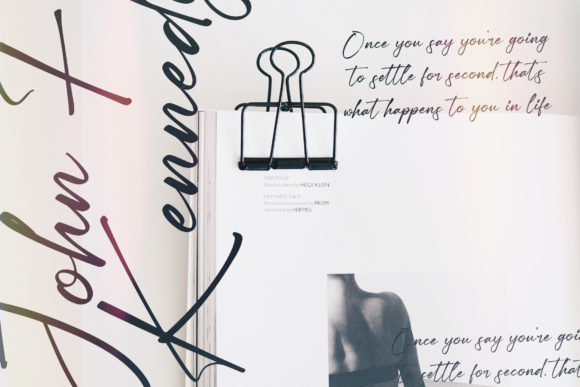 John F
Kennedy
Once you say you're going
to settle for second. that's
what happens to you in life
HEIDI KLEIN
PRISM
HERMES
Once you say you're going
settle for second. that's